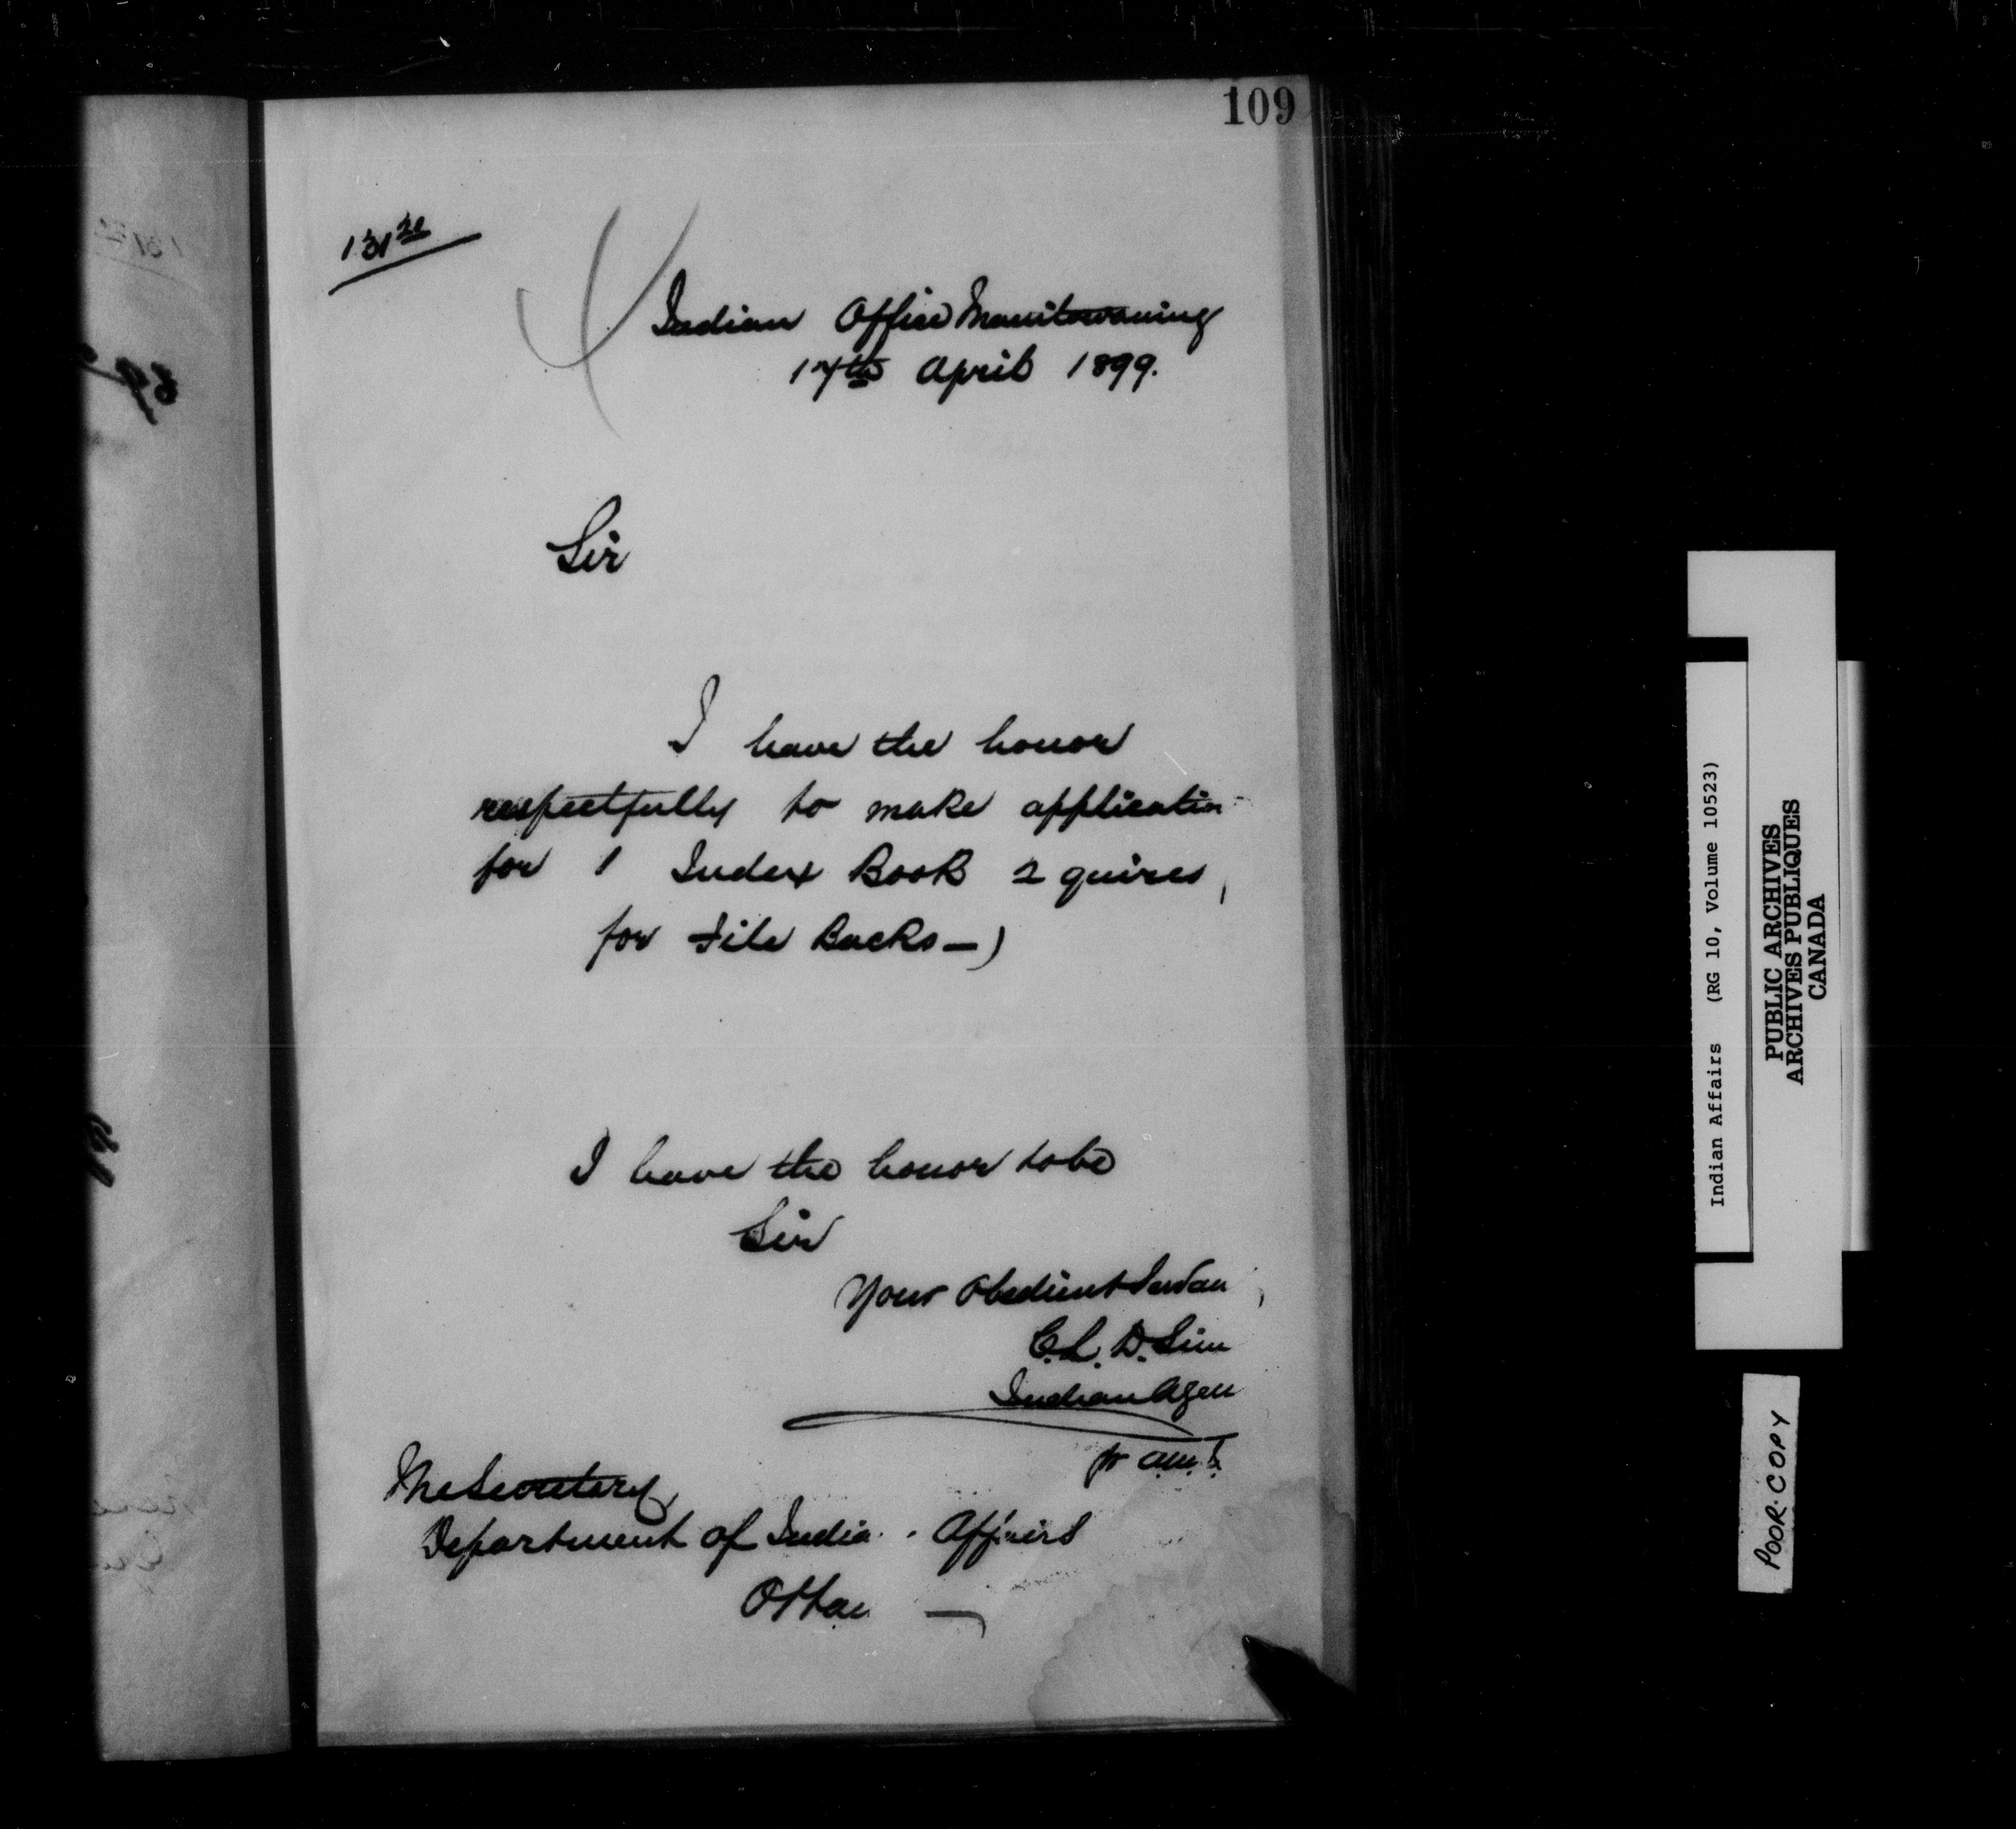 109
131
Indian Office Manitowaning
17th April 1899.
Sir
I have the honor
respectfully to make application
for 1 Index Book 2 quires,
for File Backs—)
I have the honor to be
Sir
Your Obedient Servan
C. L. D. Sim
Indian Agen
The Secretary
Department of India Affairs
Ottaw
Indian Affairs (RG 10, Volume 10523)
PUBLIC ARCHIVES
ARCHIVES PUBLIQUES
CANADA
POOR COPY